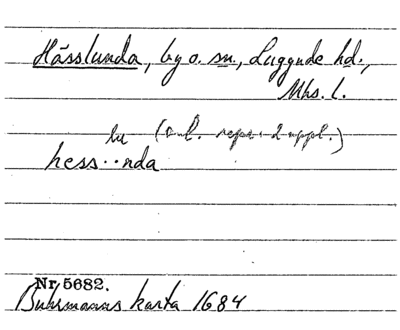 Hässlunda, by o. sn., Luggude hd.,
Mhs. l.
lu (o. l. repr. 2 uppl.)
hess..nda
Nr 5682.
Buhrmanns karta 1684